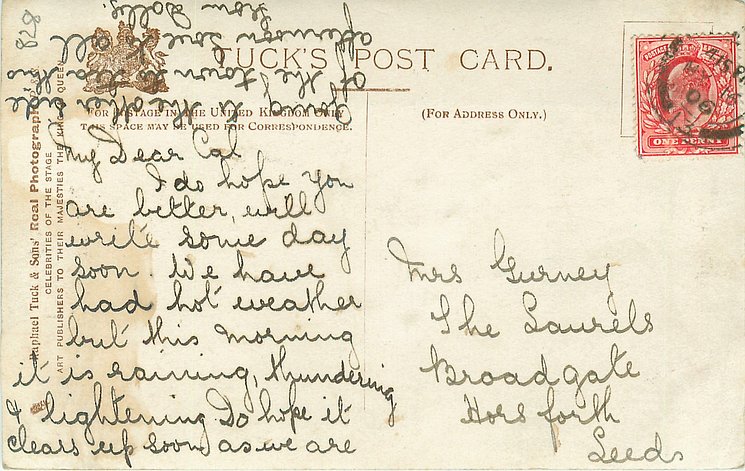 828
TUCK'S POST CARD.
FOR POSTAGE IN THE UNITED KINGDOM ONLY
THIS SPACE MAY BE USED FOR CORRESPONDENCE.
(FOR ADDRESS ONLY.)
POSTAGE
ONE PENNY
Raphael Tuck & Sons' Real Photograph
CELEBRITIES OF THE STAGE
ART PUBLISHERS TO THEIR MAJESTIES THE KING & QUEEN
My Dear Cal
I do hope you
are better, will
write some day
soon. We have
had hot weather
but this morning
it is raining, thundering
& lightening Do hope it
clears up soon as we are
going to the other side
of the town to tea this
afternoon love to all
from Dolly.
Mrs Gurney
The Laurels
Broadgate
Horsforth
Leeds